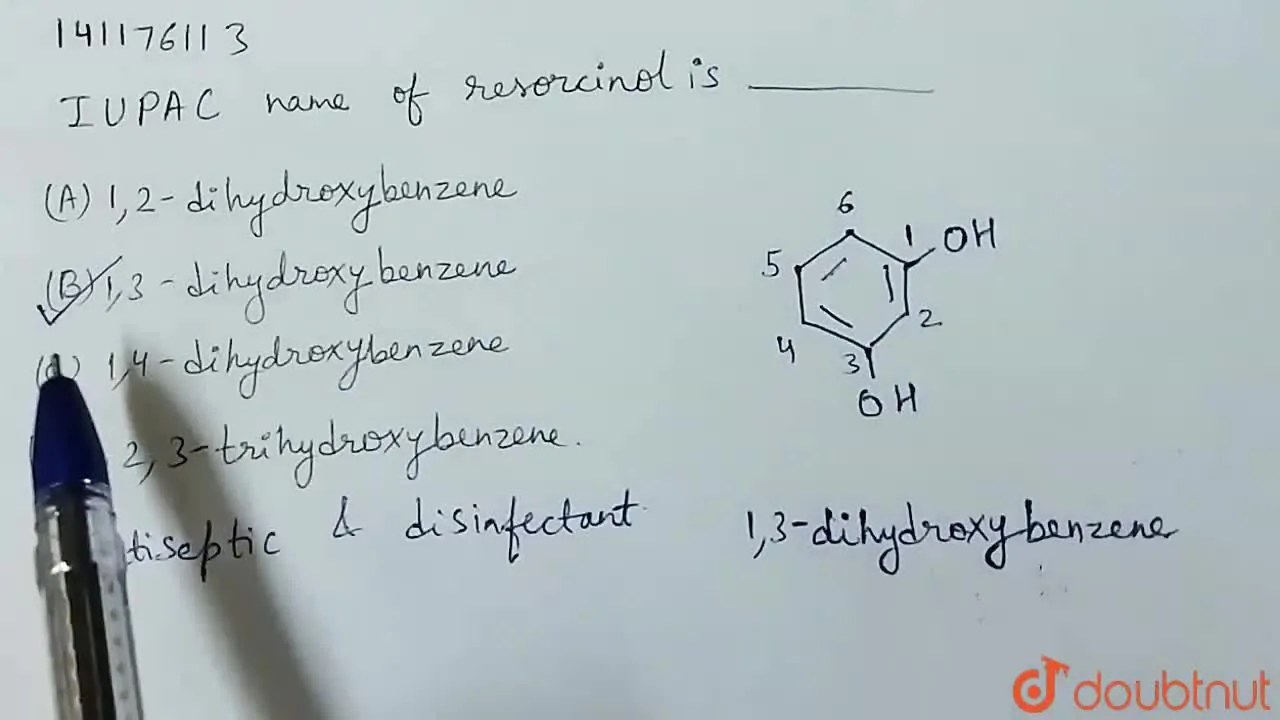 141176113
IUPAC name of resorcinol is
(A) 1,2-dihydroxybenzene
(B) 1,3-dihydroxybenzene
1,4-dihydroxybenzene
2,3-trihydroxybenzene.
tiseptic & disinfectant
6
1 OH
5
2
4
3
OH
1,3-dihydroxybenzene
doubtnut